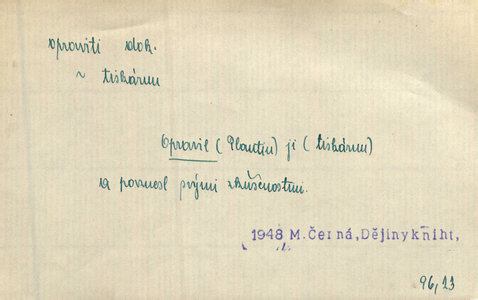 opraviti dok.
~ tiskárnu
Opravil (Plantin) ji (tiskárnu)
a povznesl svými zkušenostmi.
1948 M.Černá,Dějiny knih,
96,23